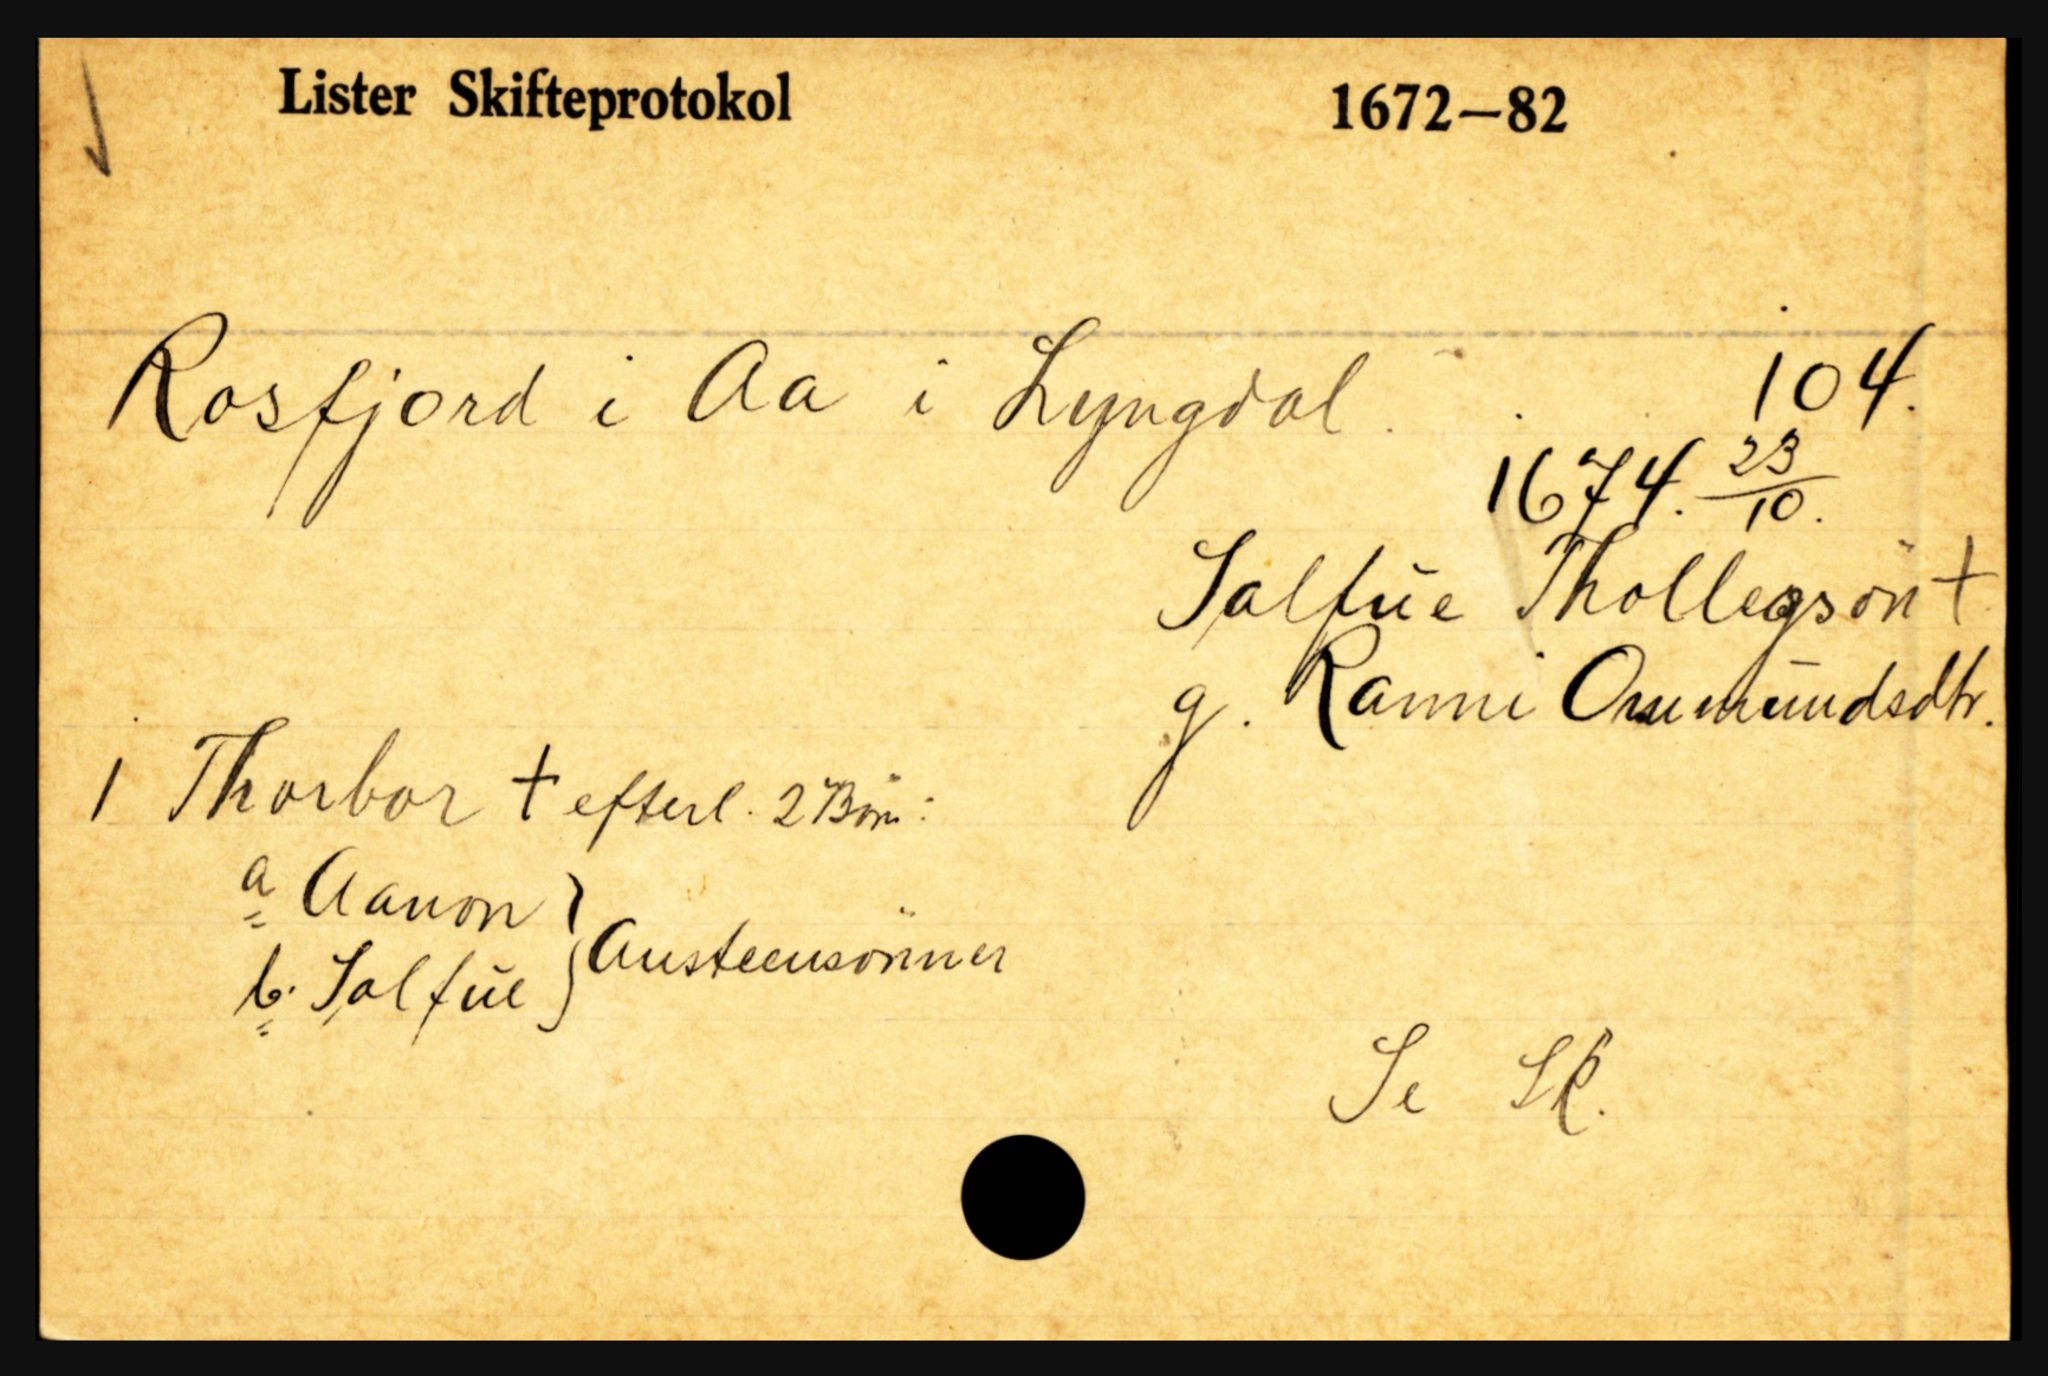 Lister Skifteprotokol 1672–82
Rosfjord i Aa i Lyngdal. 104.
1674. 23/10.
Salfŭe Thollegsön †
g. Ranni Osmŭndsdtr.
1 Thorbor † efterl. 2 Börn:
a Aanon } Austeensönner
b. Salfŭe
Se